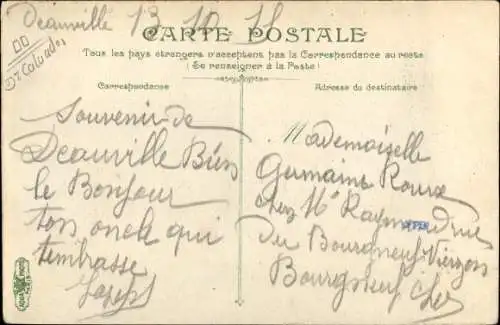 Deauville 13
CARTE POSTALE
Tous les pays étrangers n'acceptent pas la Correspondance au recto
(Se renseigner à la Poste)
Correspondance
Adresse du destinataire
Dt Calvados
Souvenir de
Deauville Bien
le Bonjour
ton oncle qui
t'embrasse
Mademoiselle
Germaine Roux
chez Mr Raymond rue
du Bourgneuf Vierzon
Bourgneuf Cher